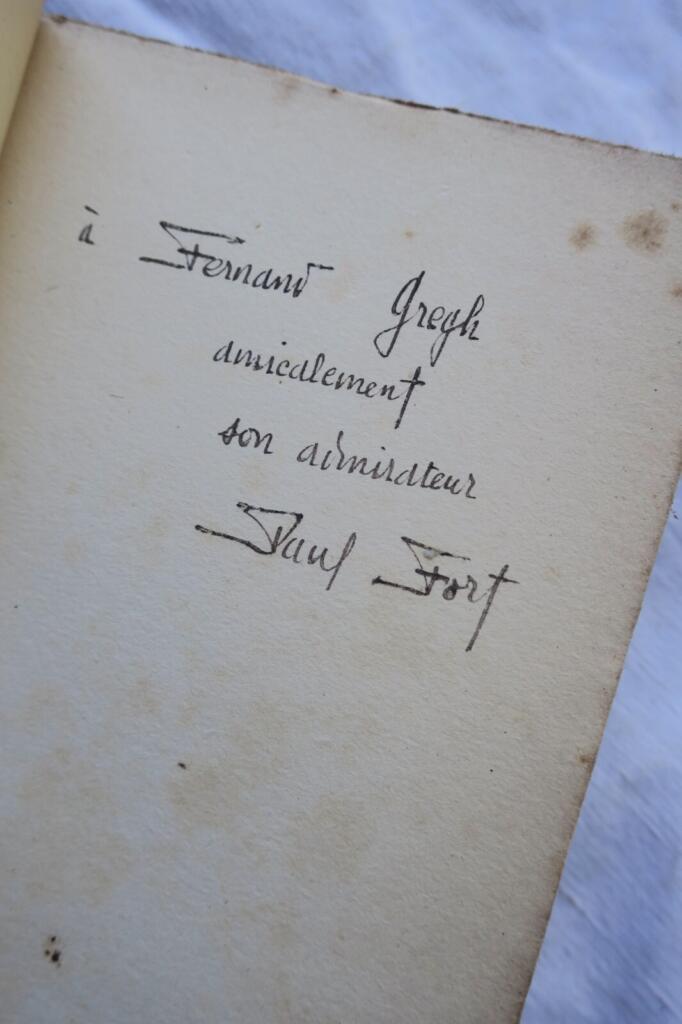 à Fernand Gregh
amicalement
son admirateur
Paul Fort